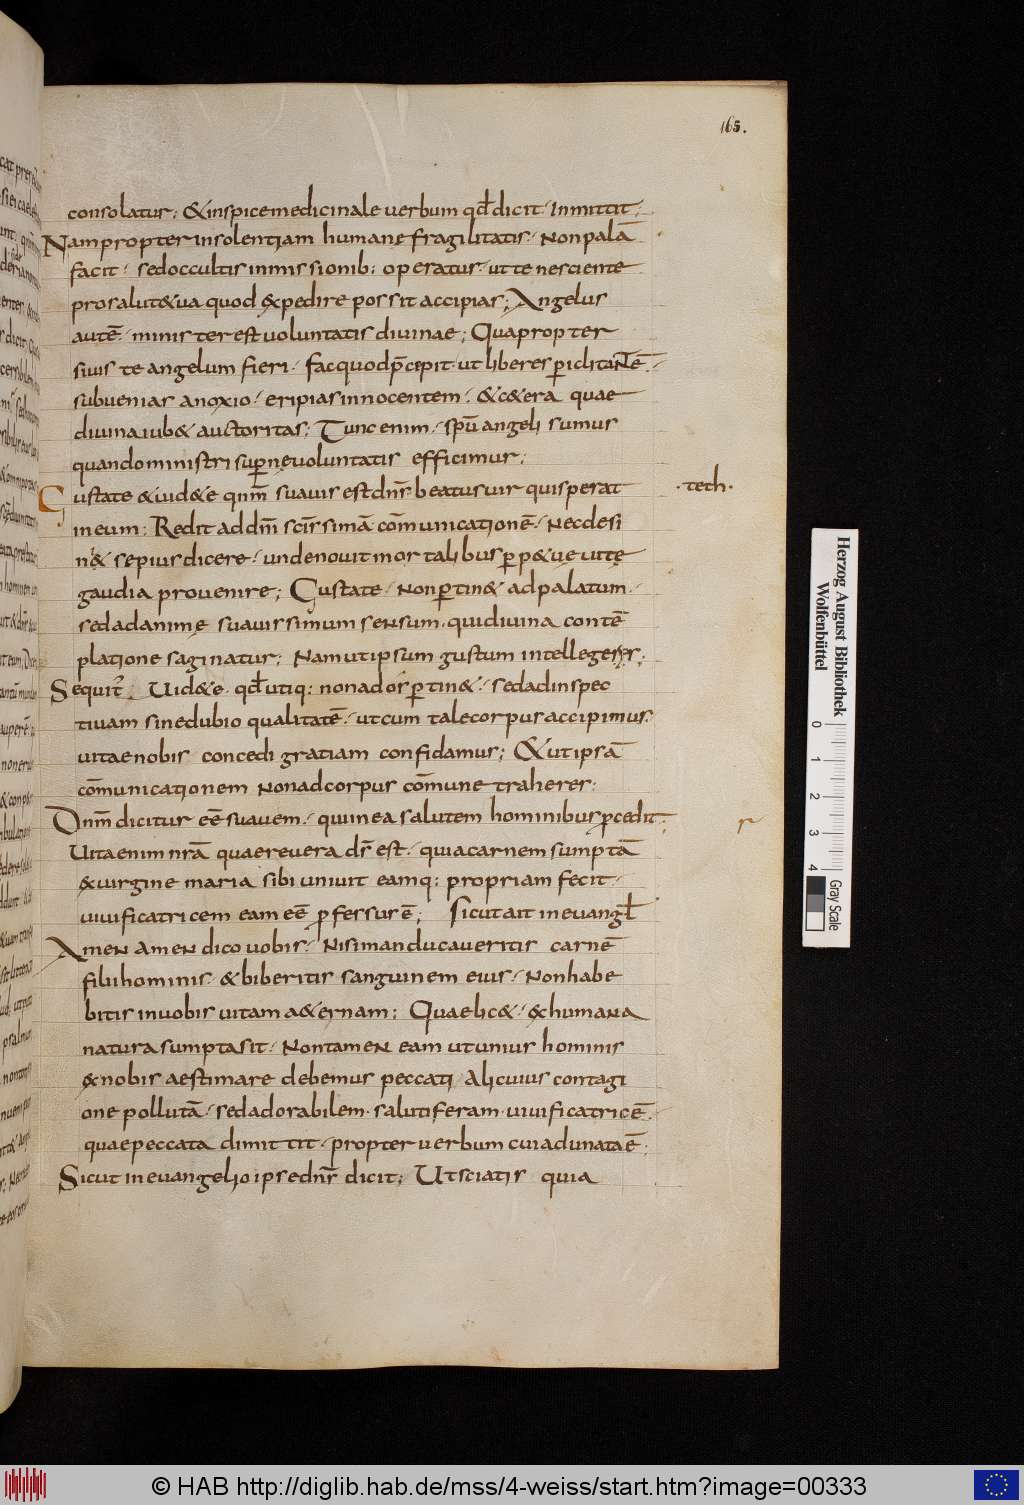 165.
consolatur; & inspice medicinale uerbum qđ dicit· Inmittit;
Nam propter insolentiam humanę fragilitatis· Non palā
facit· sed occultis inmissionib; operatus· ut te nesciente
pro salute tua quod expedire possit accipias; Angelus
autē· minister est uoluntatis diuinae; Quapropter
siuis te angelum fieri· fac quod p̄cepit· ut liberes periclitantē·
subueniar anoxio· eripias innocentem· & c&era quae
diuina iub& auctoritas; Tunc enim· spū angeli sumus
quando ministri supernę uoluntatis efficimur;
Gustate & uid&e qm̄ suauis est dn̄s beatus uir qui sperat
in eum; Redit ad dn̄i sc̄issimā cōmunicationē· Nec desi
n& sepius dicere· unde nouit mortalibus perp&uę uitę
gaudia prouenire; Gustate· Non pertin& ad palatum·
sed ad animę suauissimum sensum· qui diuina contē
platione saginatur; Nam ut ipsum gustum intellegeres;
Sequit̄· Uid&e· qđ utiq; non ad os pertin&· sed ad inspec
tiuam sine dubio qualitatē· ut cum tale corpus accipimus·
uitae nobis concedi gratiam confidamus; & ut ipsā
cōmunicationem non ad corpus cōmune traheres;
Dn̄m dicitur eē suauem· qui in ea salutem hominibus p̄cedit·
Uita enim nr̄ā quae reuera dn̄s est· quia carnem sumptā
ex uirgine maria sibi uniuit eamq; propriam fecit·
uiuificatricem eam eē professus ē; Sicut ait in euangł
Amen amen dico uobis· Nisi manducaueritis carnē
filii hominis· & biberitis sanguinem eius· Non habe
bitis in uobis uitam a&ernam; Quae lic&· ex humana
natura sumpta sit· Non tamen eam ut unius hominis
ex nobis aestimare debemus peccati alicuius contagi
one pollutā· sed adorabilem· salutiferam· uiuificatricē·
quae peccata dimittit· propter uerbum cui adunata ē;
Sicut in euangelio ipse dn̄s dicit; Ut sciatis quia
·teth·
r
Herzog August Bibliothek
Wolfenbüttel
0 1 2 3 4
Gray Scale
© HAB http://diglib.hab.de/mss/4-weiss/start.htm?image=00333